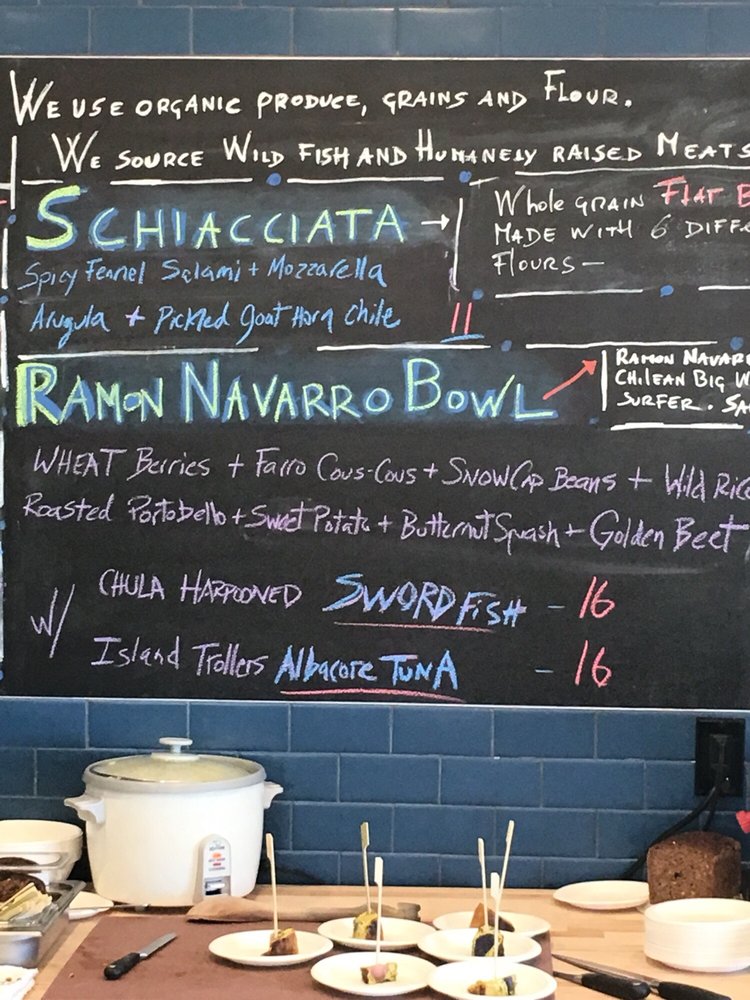 We use organic produce, grains and Flour.
We source Wild Fish and Humanely raised Meats
SCHIACCIATA →
Whole grain Flat
made with 6
Flours —
Spicy Fennel Salami + Mozzarella
Arugula + Pickled goat Horn Chile 11
RAMON NAVARRO BOWL
Ramon
Chilean Big
Surfer.
WHEAT Berries + Farro Cous-Cous + SNOWCAP Beans + Wild
Roasted Portobello + Sweet Potato + Butternut Squash + Golden Beet
w/
CHULA HARPOONED SWORDFISH - 16
Island Trollers Albacore TUNA - 16